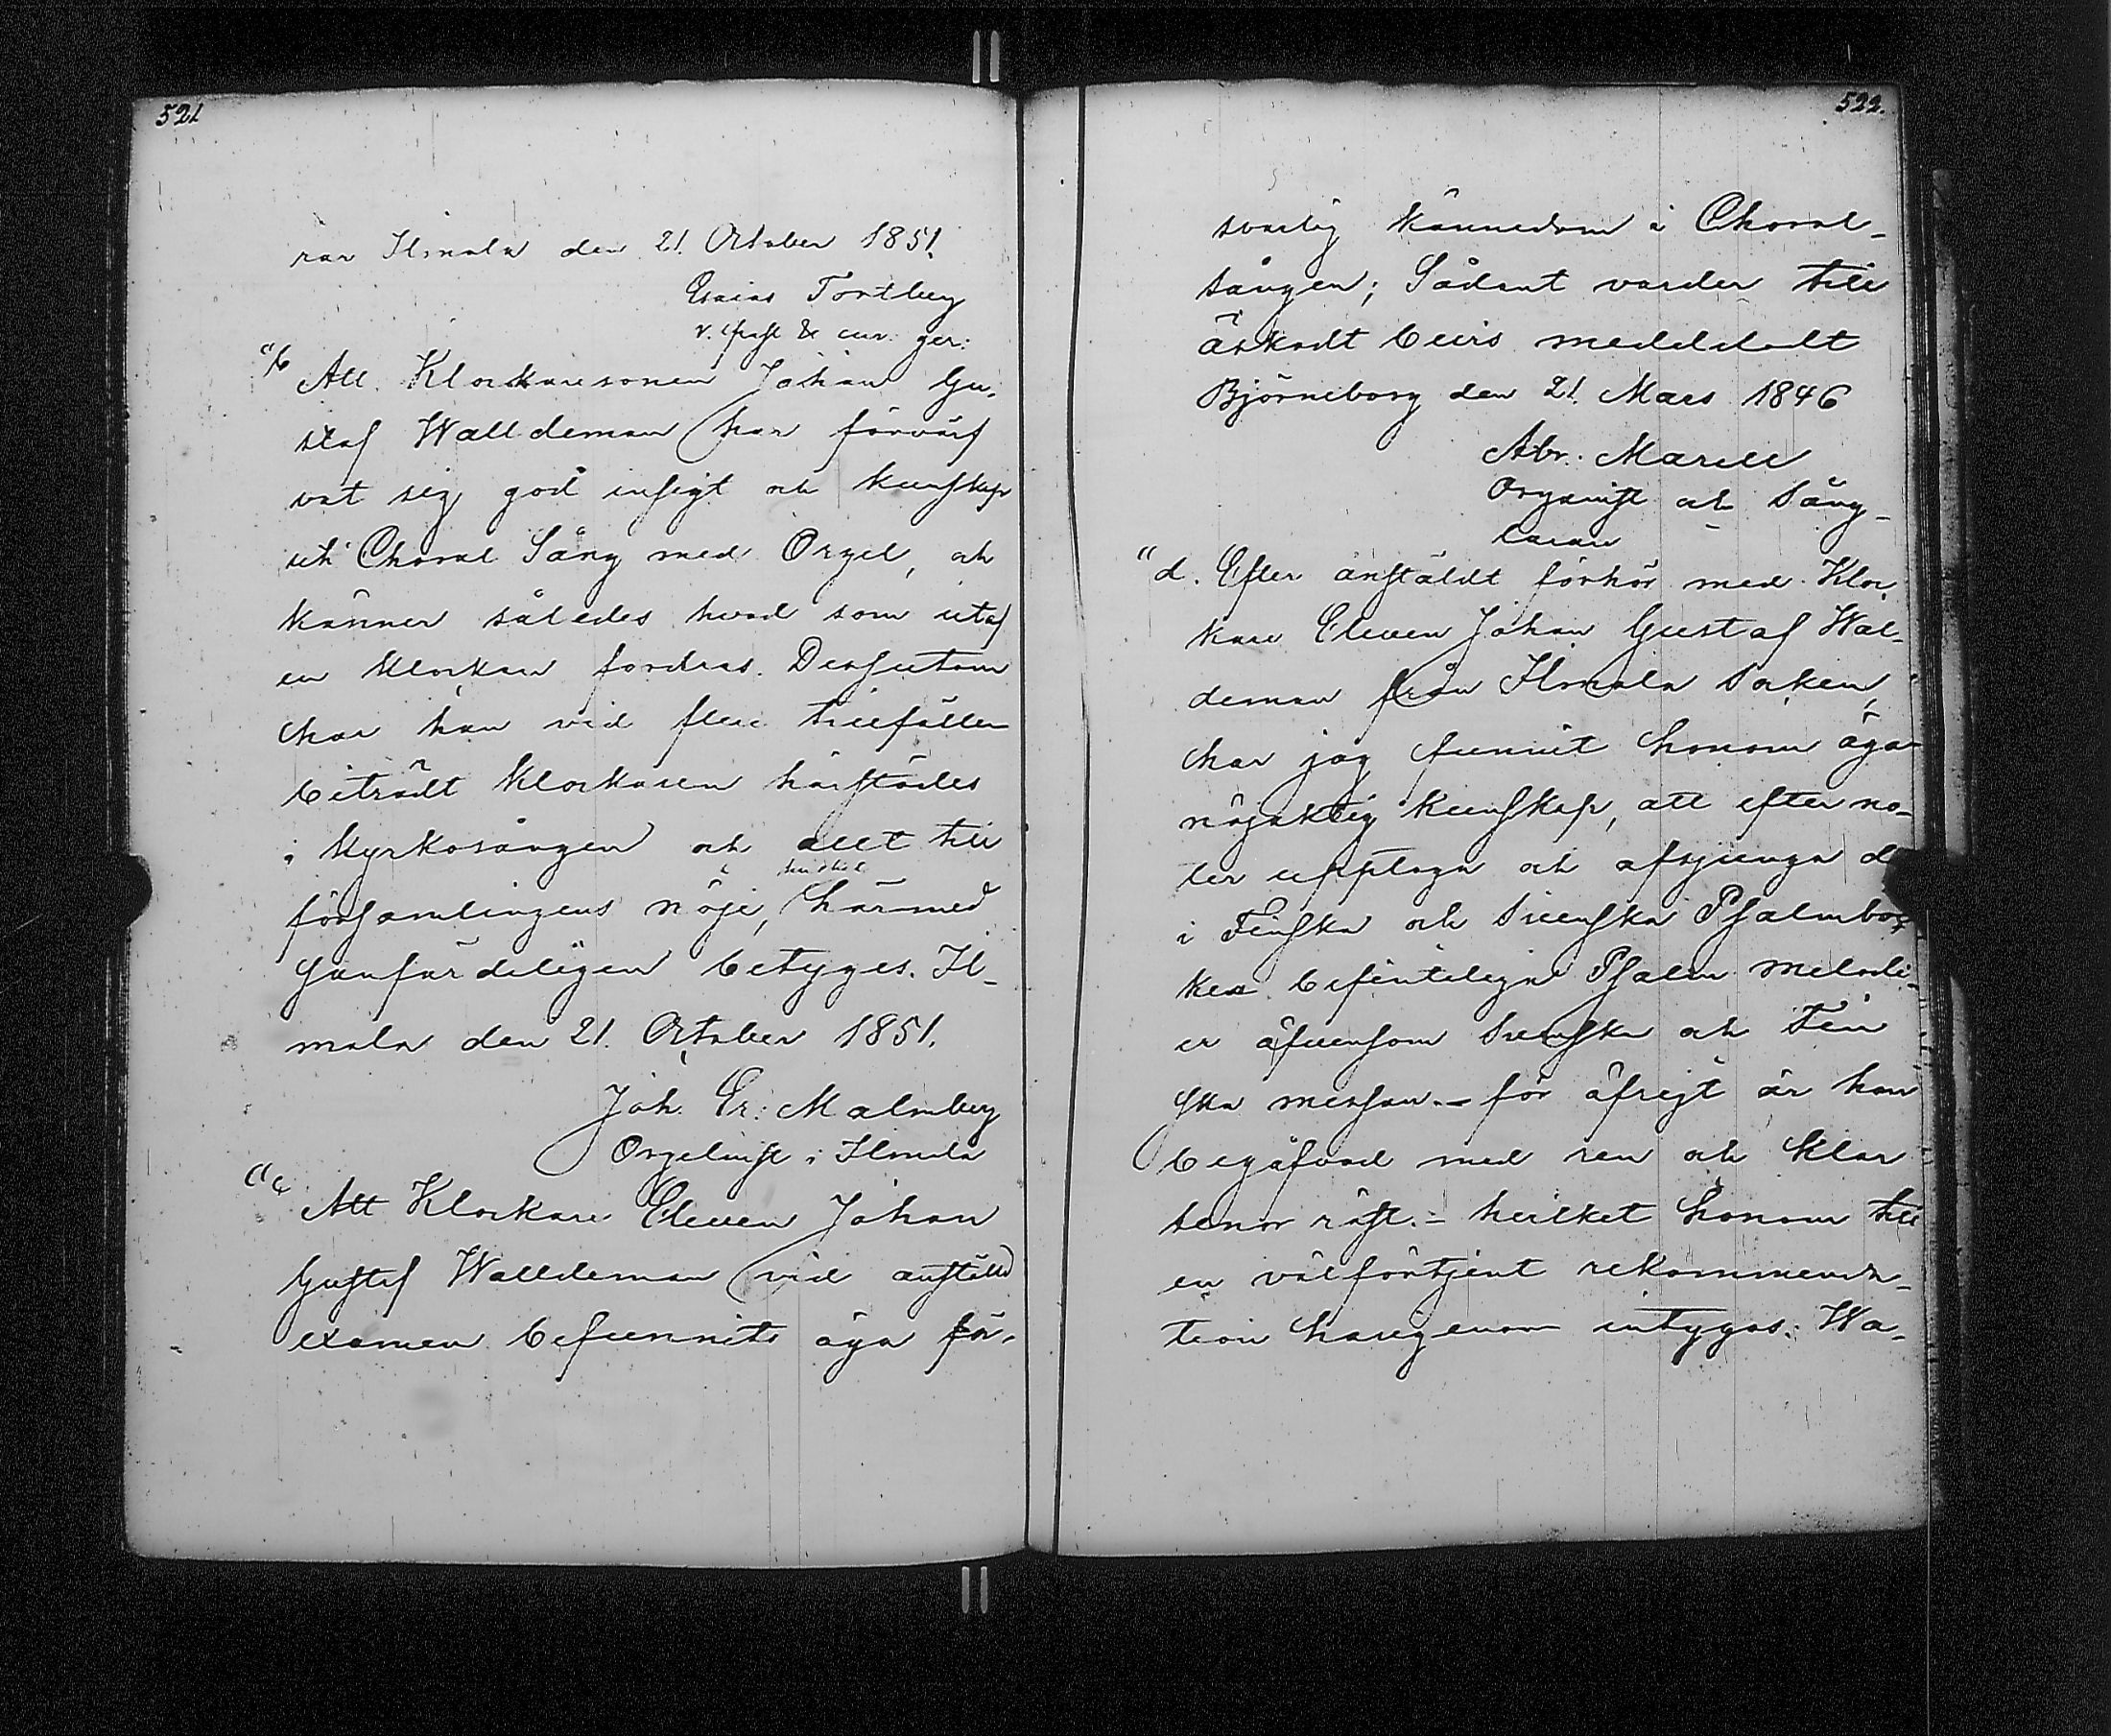 521
rar Ilmola den 21. October 1851.
Esaias Tortberg
v. past & cur. ger:
"b
Att Klockaresonen Johan Gu-
staf Walldeman har förvärf
vat sig god insigt och kunskap
uti Choral Sång med Orgel, och
känner således hvad som utaf
en klockare fordras. Dessutom
har han vid flere tillfällen
biträdt klockaren härstädes
i kyrkosången och allt till
församlingens nöje, härmed
sanfärdeligen betyges. Il-
mola den 21. October 1851.
Joh. Er: Malmberg
Orgelnist i Ilmola
"c
Att Klockare Eleven Johan
Gustaf Walldeman vid anställd
examen befunnits äga för-
522.
svarlig kännedom i Choral-
sången; Sådant varder till
äskadt bevis meddeladt
Björneborg den 21. Mars 1846
Abr. Marell
Organist och Sång-
larare
"d. Efter anstäldt förhör med Kloc
kare Eleven Johan Gustaf Wal-
deman från Ilmola Socken,
har jag funnit honom äga
nöjaktig kunskap, att efter no-
ter upptaga och afsjunga de
i Finska och Svenska Psalmboc
ken befinteliga Psalm melodi-
er äfvensom Svenska och Fin
ska messan. – för öfrigt är han
begåfvad med ren och klar
tenor röst. – hvilket honom till
en välförtjent rekommenda-
tion harigenom intygas. Wa-